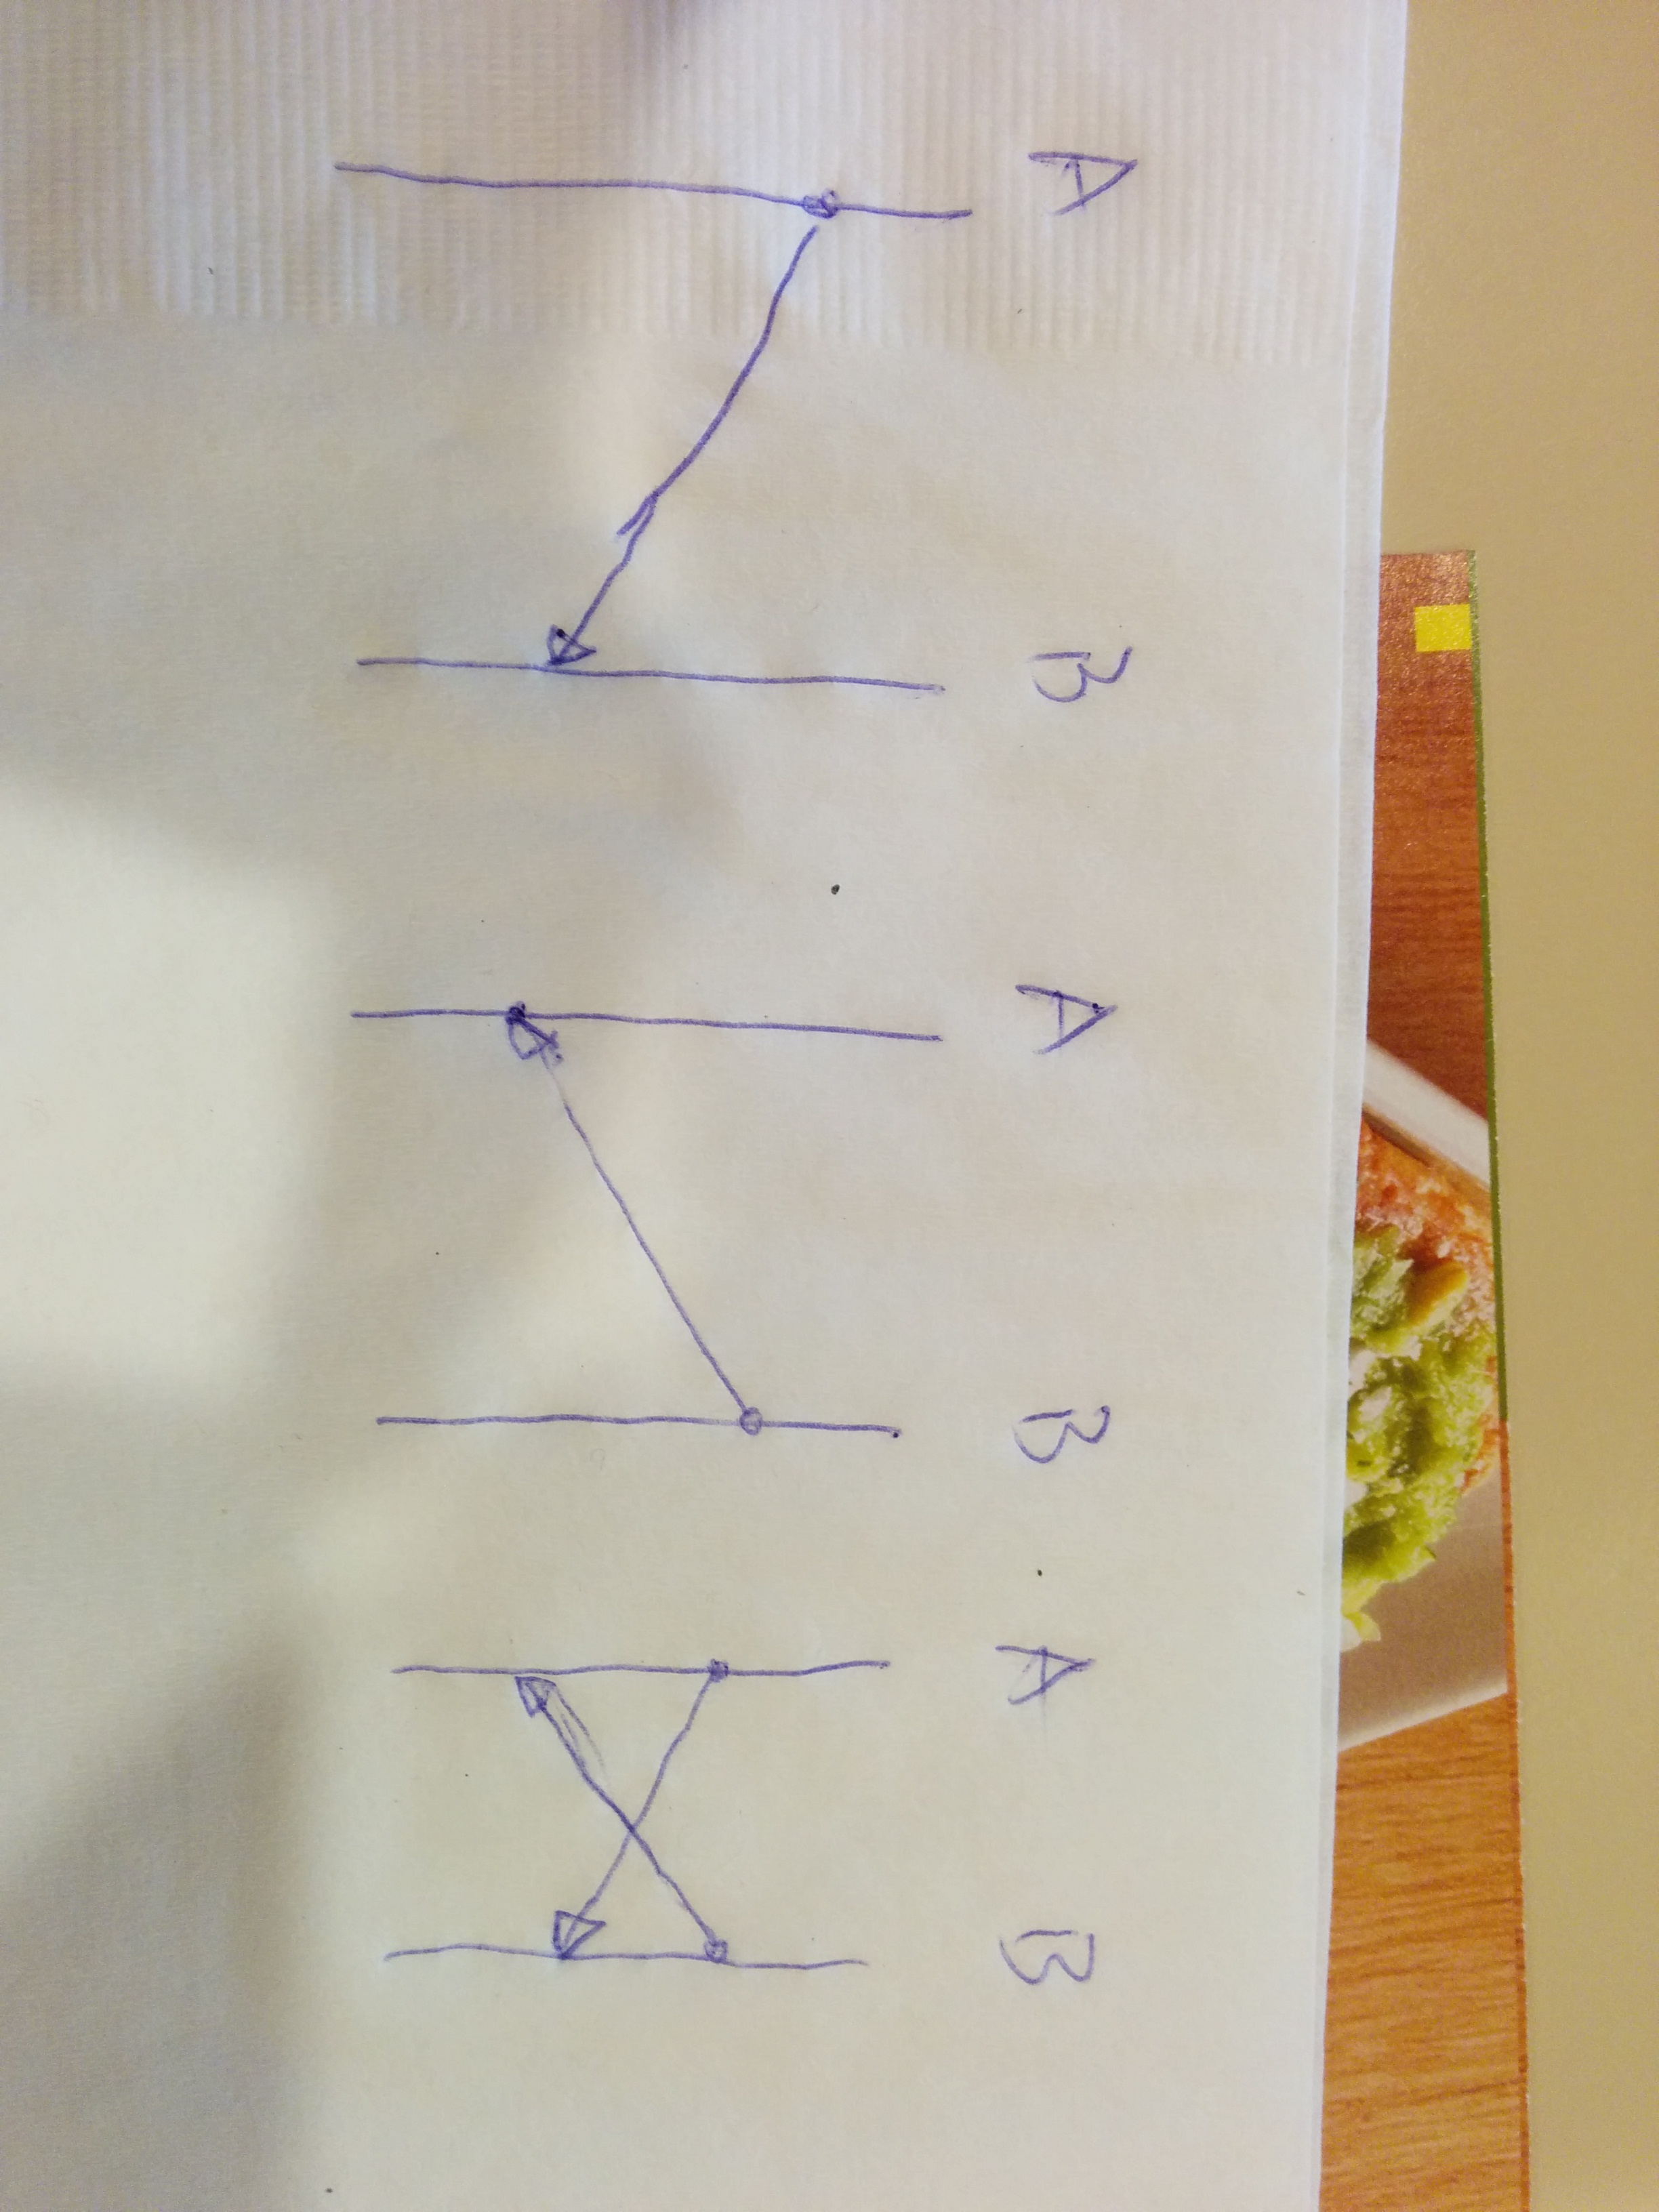 A B A B A B